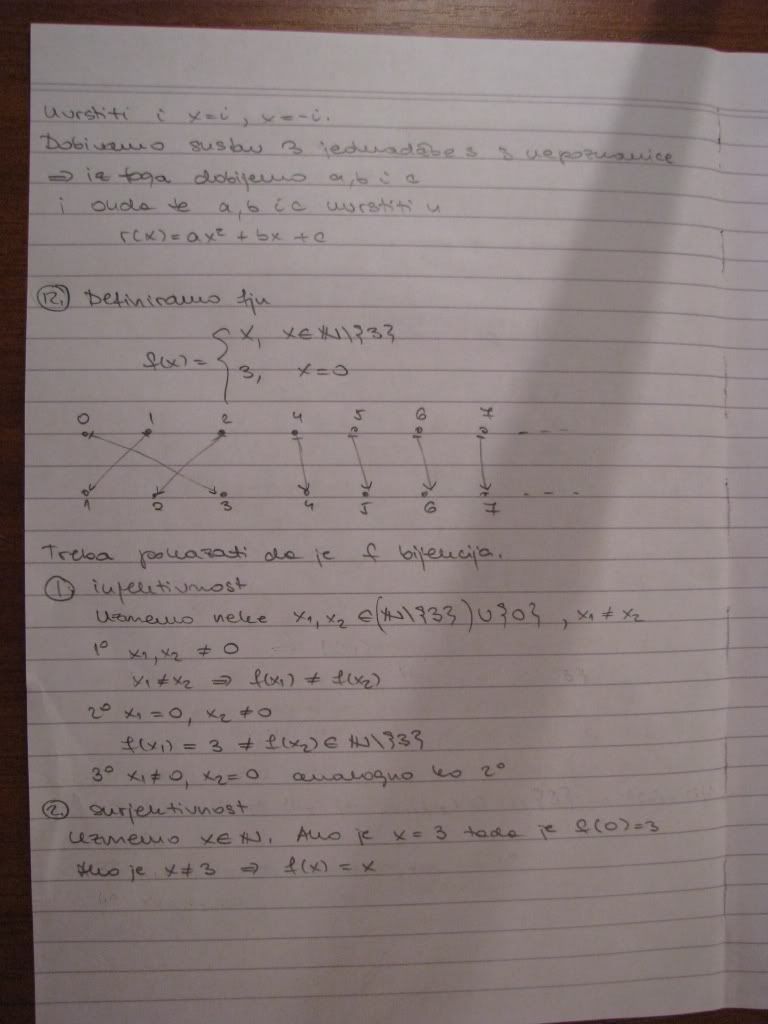 Uvrstiti i x=i, x=-i.
Dobivamo sustav 3 jednadžbe s 3 nepoznanice
⇒ iz toga dobijemo a,b i c
i onda te a,b i c uvrstiti u
r(x)=ax²+bx+c
12. Definiramo fju
f(x)= { x, x∈ℕ\{3}
3, x=0
0 1 2 4 5 6 7 ---
1 2 3 4 5 6 7 ---
Treba pokazati da je f bijekcija.
1. injektivnost
Uzmemo neke x₁,x₂ ∈(ℕ\{3})∪{0}, x₁≠x₂
1° x₁,x₂ ≠ 0
x₁≠x₂ ⇒ f(x₁) ≠ f(x₂)
2° x₁=0, x₂≠0
f(x₁) = 3 ≠ f(x₂)∈ℕ\{3}
3° x₁≠0, x₂=0 analogno ko 2°
2. surjektivnost
Uzmemo x∈ℕ. Ako je x=3 tada je f(0)=3
Ako je x≠3 ⇒ f(x)=x